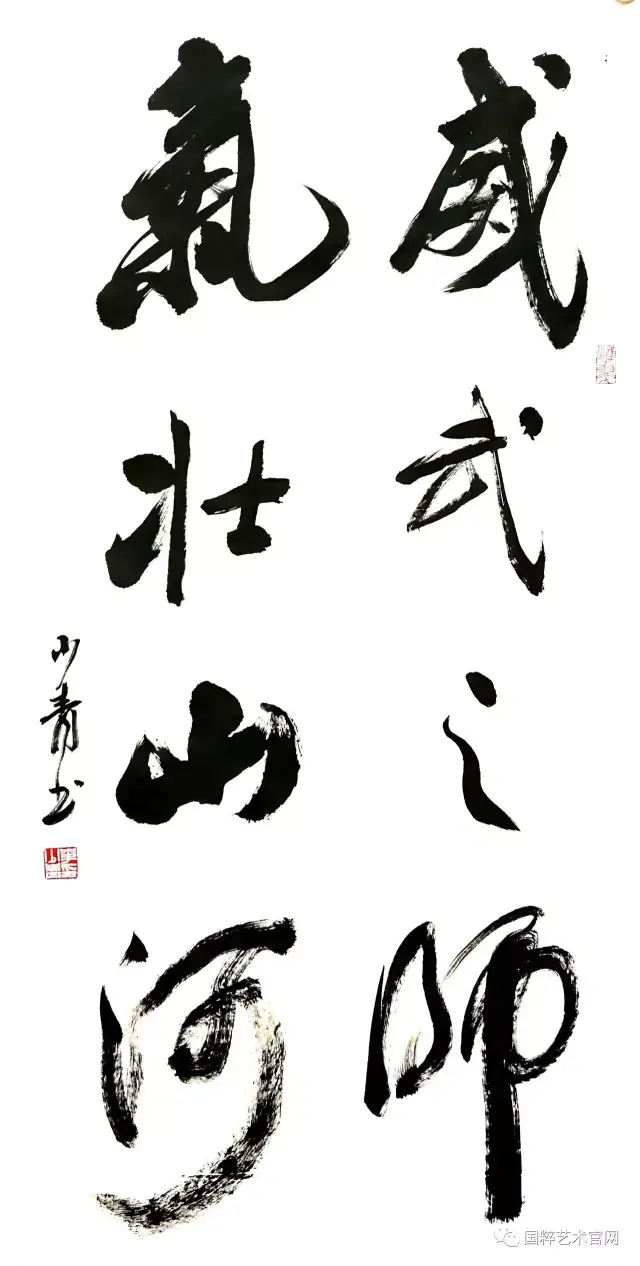 威武之师
氣壮山河
少青书
国粹艺术官网